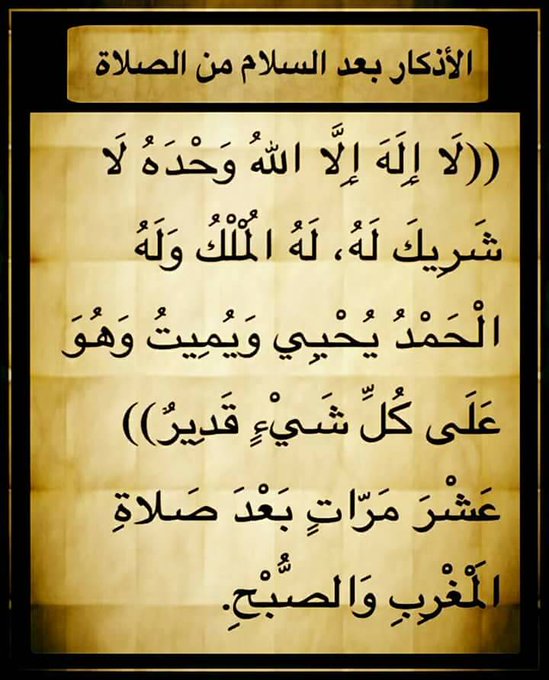 الأذكار بعد السلام من الصلاة
((لَا إِلَهَ إِلَّا اللهُ وَحْدَهُ لَا
شَرِيكَ لَهُ، لَهُ الْمُلْكُ وَلَهُ
الْحَمْدُ يُحْيِي وَيُمِيتُ وَهُوَ
عَلَى كُلِّ شَيْءٍ قَدِيرٌ))
عَشْرَ مَرَّاتٍ بَعْدَ صَلاةِ
الْمَغْرِبِ وَالصُّبْحِ.